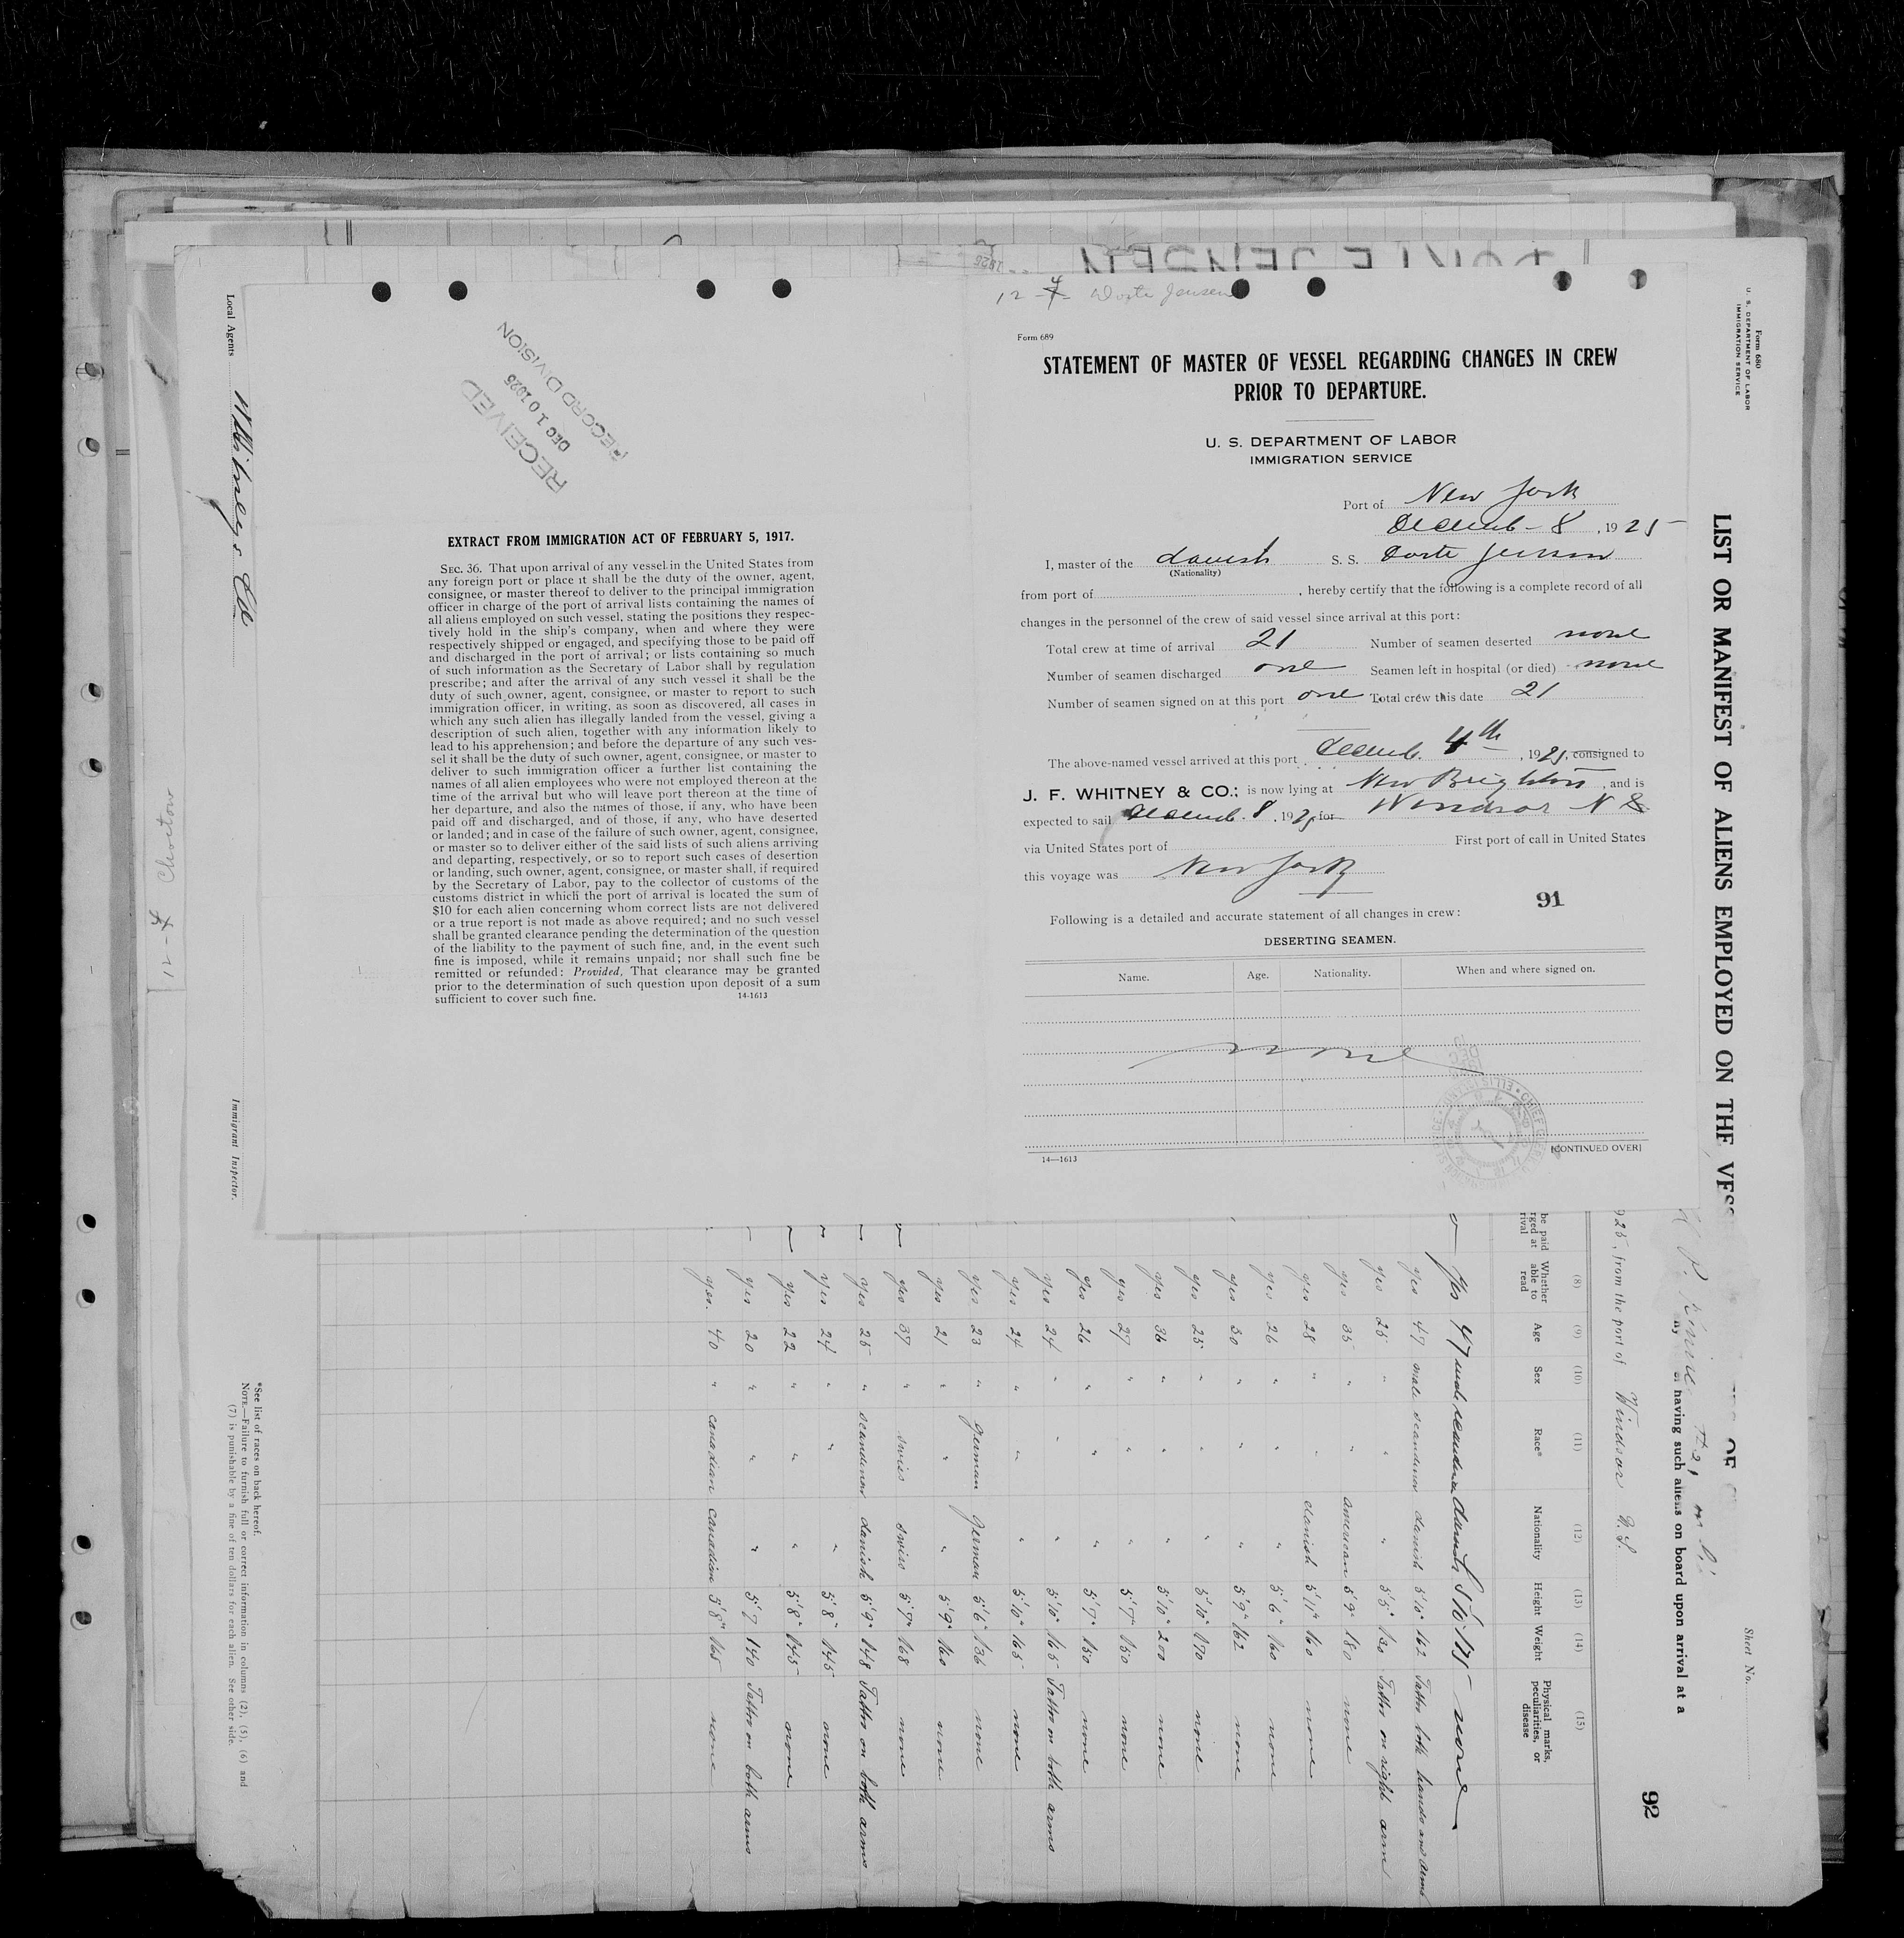 DORTE JENSEN
1925
12-4 Dorte Jensen
Form 689
STATEMENT OF MASTER OF VESSEL REGARDING CHANGES IN CREW
PRIOR TO DEPARTURE.
U. S. DEPARTMENT OF LABOR
IMMIGRATION SERVICE
Port of New York
Decemb - 8, 1925
I, master of the danish S. S. Dorte Jensen
(Nationality)
from port of , hereby certify that the following is a complete record of all
changes in the personnel of the crew of said vessel since arrival at this port:
Total crew at time of arrival 21 Number of seamen deserted none
Number of seamen discharged one Seamen left in hospital (or died) none
Number of seamen signed on at this port one Total crew this date 21
The above-named vessel arrived at this port Decemb. 4th, 1925, consigned to
J. F. WHITNEY & CO.; is now lying at New Brighton, and is
expected to sail Decemb. 8, 1925 for Windsor N S
via United States port of First port of call in United States
this voyage was New York
91
Following is a detailed and accurate statement of all changes in crew:
DESERTING SEAMEN.
Name. Age. Nationality. When and where signed on.
none
14—1613
[CONTINUED OVER]
RECEIVED
DEC 10 1925
RECORD DIVISION
EXTRACT FROM IMMIGRATION ACT OF FEBRUARY 5, 1917.
SEC. 36. That upon arrival of any vessel in the United States from
any foreign port or place it shall be the duty of the owner, agent,
consignee, or master thereof to deliver to the principal immigration
officer in charge of the port of arrival lists containing the names of
all aliens employed on such vessel, stating the positions they respec-
tively hold in the ship's company, when and where they were
respectively shipped or engaged, and specifying those to be paid off
and discharged in the port of arrival; or lists containing so much
of such information as the Secretary of Labor shall by regulation
prescribe; and after the arrival of any such vessel it shall be the
duty of such owner, agent, consignee, or master to report to such
immigration officer, in writing, as soon as discovered, all cases in
which any such alien has illegally landed from the vessel, giving a
description of such alien, together with any information likely to
lead to his apprehension; and before the departure of any such ves-
sel it shall be the duty of such owner, agent, consignee, or master to
deliver to such immigration officer a further list containing the
names of all alien employees who were not employed thereon at the
time of the arrival but who will leave port thereon at the time of
her departure, and also the names of those, if any, who have been
paid off and discharged, and of those, if any, who have deserted
or landed; and in case of the failure of such owner, agent, consignee,
or master so to deliver either of the said lists of such aliens arriving
and departing, respectively, or so to report such cases of desertion
or landing, such owner, agent, consignee, or master shall, if required
by the Secretary of Labor, pay to the collector of customs of the
customs district in which the port of arrival is located the sum of
$10 for each alien concerning whom correct lists are not delivered
or a true report is not made as above required; and no such vessel
shall be granted clearance pending the determination of the question
of the liability to the payment of such fine, and, in the event such
fine is imposed, while it remains unpaid; nor shall such fine be
remitted or refunded: Provided, That clearance may be granted
prior to the determination of such question upon deposit of a sum
sufficient to cover such fine. 14-1613
Form 680
U. S. DEPARTMENT OF LABOR
IMMIGRATION SERVICE
Sheet No.
92
LIST OR MANIFEST OF ALIENS EMPLOYED ON THE VESS
OF
having such aliens on board upon arrival at a
925, from the port of Windsor N.S.
(8) (9) (10) (11) (12) (13) (14) (15)
be paid
rged at
rival
Whether able to read Age Sex Race* Nationality Height Weight Physical marks, peculiarities, or disease
yes 47 male scandinav danish 5'10" 175 none
yes 47 male scandinav danish 5'10" 162 Tattoo both hands and arms
yes 25 " " " 5'5" 130 Tattoo on right arm
yes 35 " " american 5'9" 180 none
yes 28 " " danish 5'11" 160 none
yes 26 " " " 5'6" 160 none
yes 30 " " " 5'9" 162 none
yes 25 " " " 5'10" 170 none
yes 36 " " " 5'10" 200 none
yes 27 " " " 5'7" 150 none
yes 26 " " " 5'7" 150 none
yes 24 " " " 5'10" 165 Tattoo on both arms
yes 24 " " " 5'10" 165 none
yes 23 " german german 5'6" 136 none
yes 21 " " " 5'9" 160 none
yes 37 " swiss swiss 5'7" 168 none
yes 25 " scandinav danish 5'9" 148 Tattoo on both arms
yes 24 " " " 5'8" 145 none
yes 22 " " " 5'8" 145 none
yes 20 " " " 5'7 140 Tattoo on both arms
yes. 40 " canadian canadian 5'8" 165 none
*See list of races on back hereof.
NOTE.—Failure to furnish full or correct information in columns (2), (5), (6) and
(7) is punishable by a fine of ten dollars for each alien. See other side.
Local Agents
Immigrant Inspector.
12-4